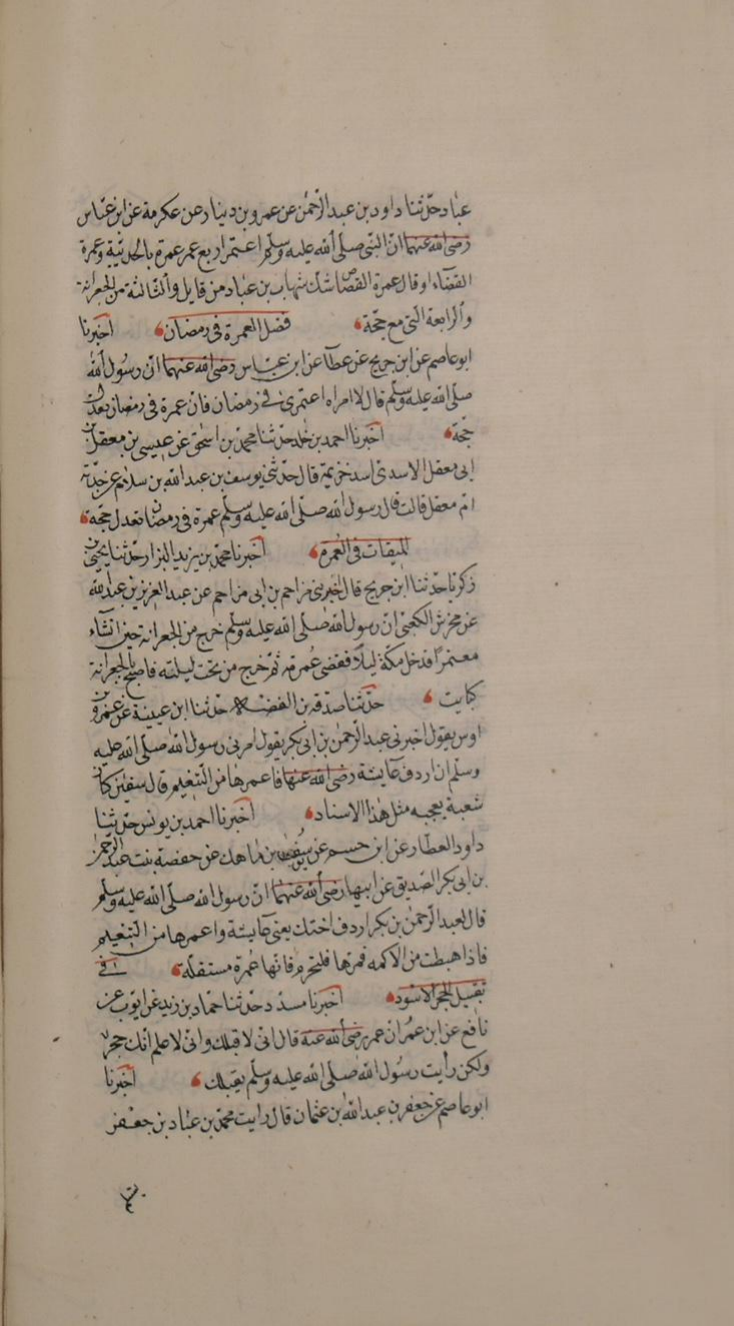 عباد حدّثنا داود بن عبد الرحمٰن عن عمرو بن دينار عن عكرمة عن ابن عبّاس
رضى الله عنهما انّ النبّى صلى الله عليه وسلّم اعتمر اربع عمر عمرة بالحديبية وعمرة
القضاء او قال عمرة القصاص شك شهاب بن عباد من قابل والثالثة من الجعرانة
والرابعة التى مع حجّة فضل العمرة فى رمضان اخبرنا
ابو عاصم عن ابن جريج عن عطآ عن ابن عبّاس رضى الله عنهما انّ رسول الله
صلى الله عليه وسلّم قال لامراه اعتمرى فى رمضان فانّ عمرة فى رمضان تعدل
حجّة اخبرنا احمد بن خلد حدّثنا محمّد بن اسحٰق عن عيسى بن معقل بن
ابى معقل الاسدىّ اسد خزيمة قال حدّثنى يوسف بن عبد الله بن سلام عن جدّته
امّ معقل قالت قال رسول الله صلّى الله عليه وسلّم عمرة فى رمضان تعدل حجّة
الميقات فى العمرة اخبرنا محمّد بن يزيد البزار حدّثنا يحيى بن
زكريا حدّثنا ابن جريج قال اخبرنى مزاحم بن ابى مزاحم عن عبد العزيز بن عبد الله
عن محرّش الكعبىّ انّ رسول الله صلّى الله عليه وسلّم خرج من الجعرانة حين انشاء
معتمرًا فدخل مكّة ليلاً فقضى عُمرته ثمّ خرج من تحت ليلته فاصبح بالجعرانة
كبايت حدّثنا صدقة بن الفضل حدّثنا ابن عيينة عن عمرو بن
اوس يقول اخبرنى عبد الرحمٰن بن ابى بكر يقول امرنى رسول الله صلّى الله عليه
وسلّم ان اردف عايشة رضى الله عنها فاعمرها من التّنعيم قال سفيٰن كان
شعبة يعجبه مثل هٰذا الاسناد اخبرنا احمد بن يونس حدّثنا
داود العطار عن ابن خثيم عن يوسف بن ماهك عن حفصة بنت عبد الرحمٰن
بن ابى بكر الصّديق عن ابيها رضى الله عنهما انّ رسول الله صلّى الله عليه وسلّم
قال لعبد الرحمٰن بن بكر اردف اختك يعنى عايشة واعمرها من التّنعيم
فاذا هبطت من الاكمه فمرها فلتحرم فانّها عُمرة مستقلّة فى
تقبيل الحجر الاسود اخبرنا مسدّد حدّثنا حمّاد بن زيد عن ايّوب عن
نافع عن ابن عمران عمر رضى الله عنه قال انّى لاقبلك وانّى لاعلم انّك حجر
ولكن رأيت رسول الله صلّى الله عليه وسلّم يقبلك اخبرنا
ابو عاصم عن جعفر بن عبد الله بن عثمان قال رايت محمّد بن عباد بن جعفر